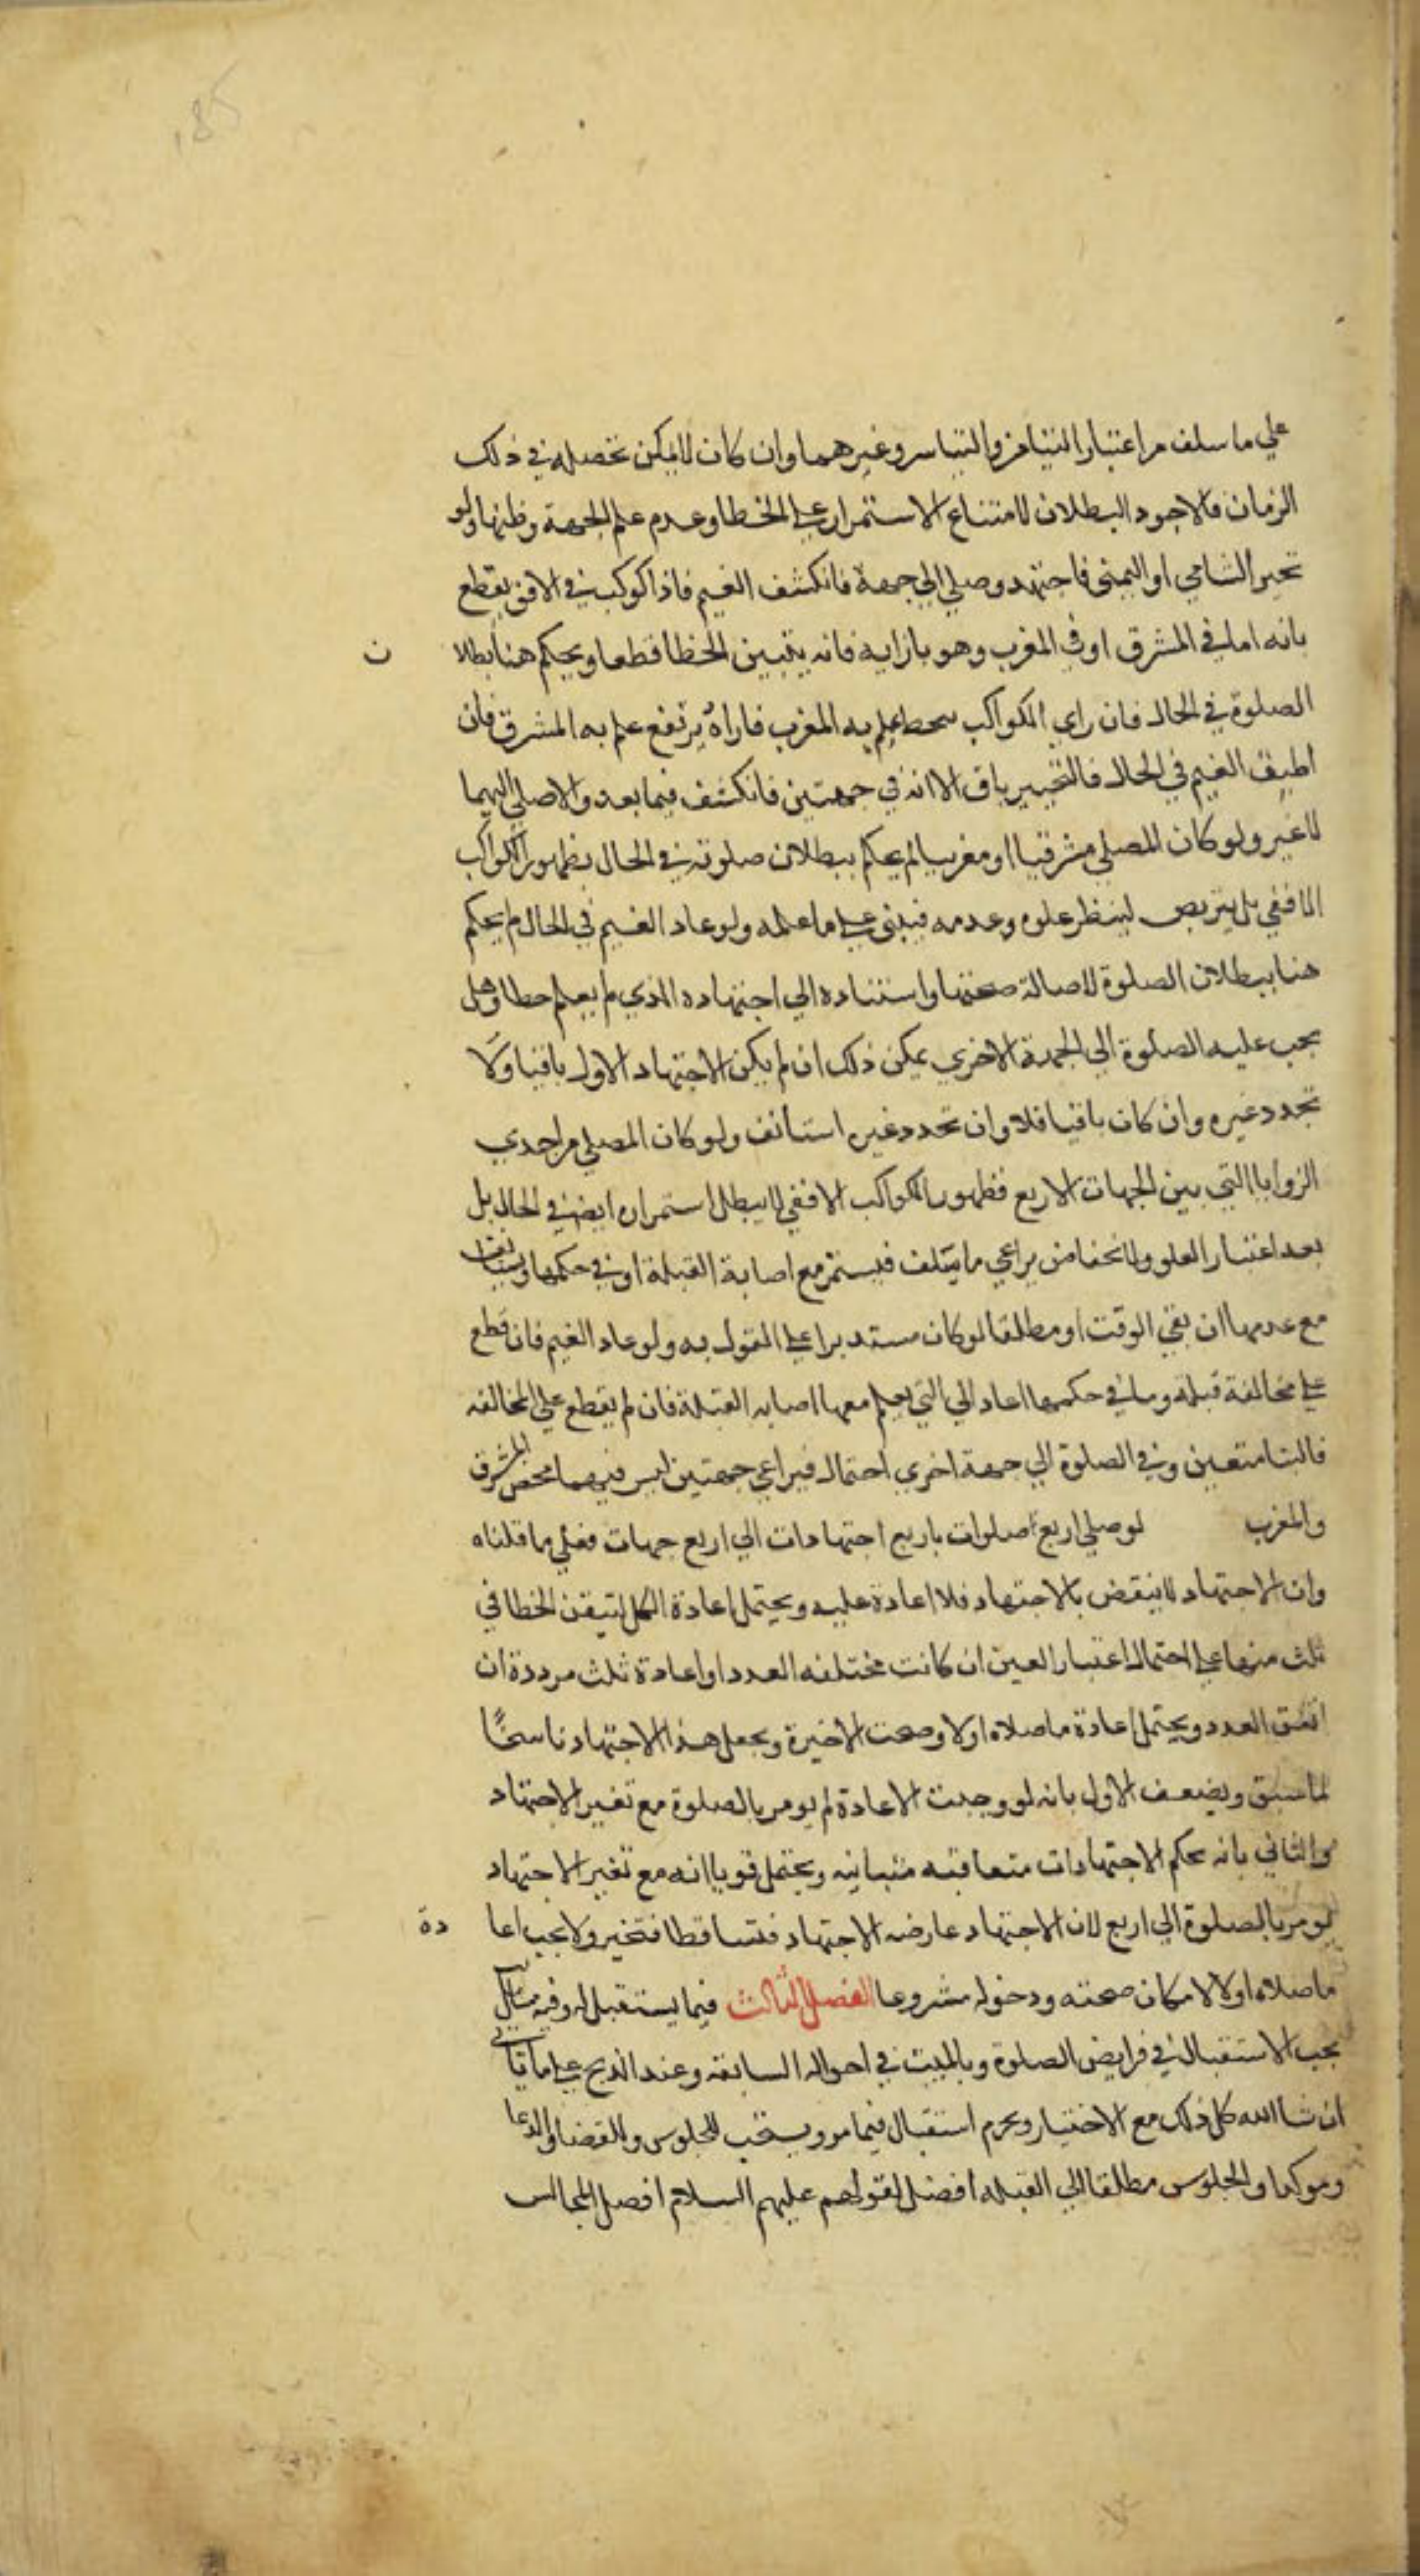 علي ما سلف من اعتبار التيامن والتياسر وغيرهما وان كان لا يمكن تحصيله في ذلك
الزمان فالاجود البطلان لامتناع الاستمرار علي الخطا وعدم علم الجهة وظنها ولو
تحير الشامي او اليمني فاجتهد وصلي الي جهة فانكشف الغيم فاذا كوكب في الافق يقطع
بانه اما في المشرق او في المغرب وهو بازايه فانه يتبين الخطا قطعا ويحكم هنا بطلا ن
الصلوة في الحال فان راي الكواكب ينحط علم به المغرب فاراه يرتفع علم به المشرق فان
اطبق الغيم في الحال فالتحيير باق الا انه في جهتين فانكشف فيما بعد والا صلي اليهما
لا غير ولو كان المصلي مشرقيا او مغربيا لم يحكم ببطلان صلوته في الحال بظهور الكواكب
الافقي بل يتربص لينظر علوه وعدمه فيبني علي ما علمه ولو عاد الغيم في الحال لم يحكم
هنا ببطلان الصلوة لاصالة صحتها واستناده الي اجتهاده الذي لم يعلم خطا وهل
يجب عليه الصلوة الي الجهة الاخري يمكن ذلك ان لم يكن الاجتهاد الاول باقيا ولا
تجدد غيره وان كان باقيا فلا وان تجدد غيره استانف ولو كان المصلي من احدي
الزوايا التي بين الجهات الاربع فظهور الكواكب الافقي لا يبطل استمراره ايض في الحال بل
بعد اعتبار العلو والانخفاض يراعي ما سلف فيستمر مع اصابة القبلة او في حكمها ويستانف
مع عدمها ان بقي الوقت او مطلقا لو كان مستدبرا علي القول به ولو عاد الغيم فان قطع
علي مخالفة قبلة وما في حكمها اعاد الي التي يعلم معها اصابه القبلة فان لم يقطع علي المخالفه
فالبنا متعين وفي الصلوة الي جهة اخري احتمال فيراعي جهتين ليس فيهما محض المشرق
والمغرب لو صلي اربع صلوات باربع اجتهادات الي اربع جهات فعلي ما قلناه
وان الاجتهاد لا ينقض بالاجتهاد فلا اعادة عليه ويحتمل اعادة الكل لتيقن الخطا في
ثلث منها علي احتمال اعتبار العين ان كانت مختلفه العدد او اعادة ثلث مرددة ان
اتفق العدد ويحتمل اعادة ما صلاه اولا وصحت الاخيرة ويجعل هذا الاجتهاد ناسخًا
لما سبق ويضعف الاول بانه لو وجبت الاعادة لم يومر بالصلوة مع تغير الاجتهاد
والثاني بانه يحكم الاجتهادات متعاقبه متباينه ويحتمل قويا انه مع تغير الاجتهاد
يومر بالصلوة الي اربع لان الاجتهاد عارضه الاجتهاد فتساقطا فتخير ولا يجب اعا دة
ما صلاه اولا لامكان صحته ودخوله مشروعا الفصل الثالث فيما يستقبل له وفيه مسائل
يجب الاستقبال في فرايض الصلوة وبالميت في احواله السابقه وعند الذبح علي ما ياتي
ان شا الله كل ذلك مع الاختيار ويحرم استقبال فيما مر ويستحب للجلوس وللقضا والدعا
وموكدا والجلوس مطلقا الي القبله افضل لقولهم عليهم السلام افضل المجالس